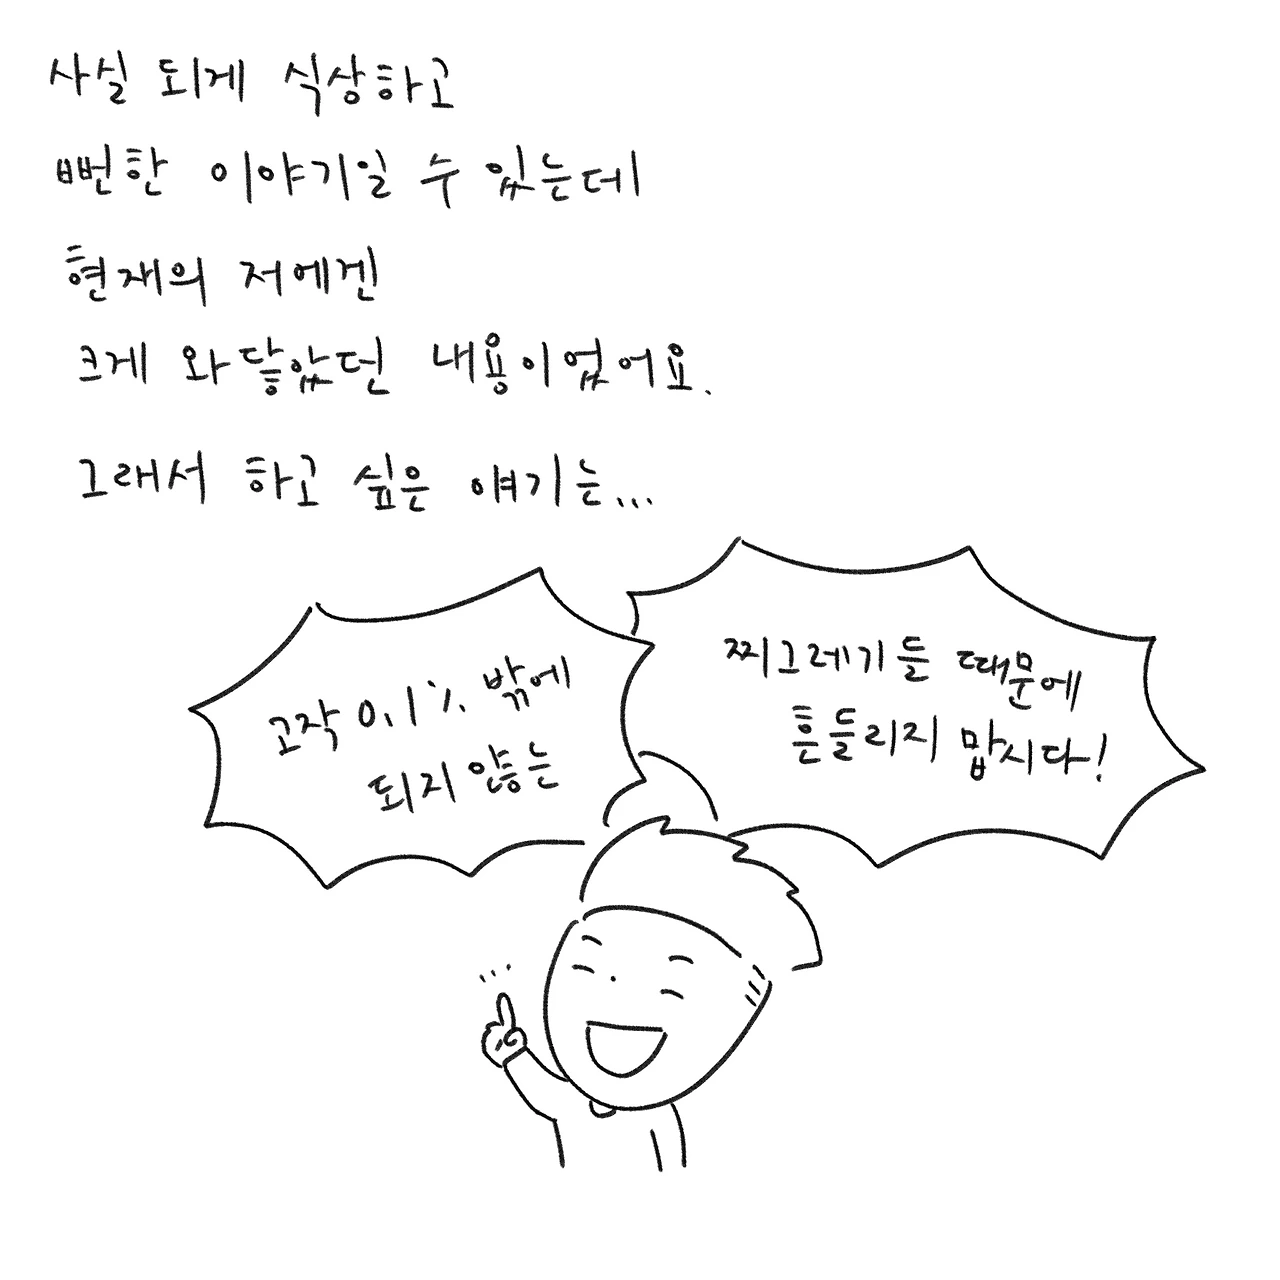 사실 되게 식상하고
뻔한 이야기일 수 있는데
현재의 저에겐
크게 와닿았던 내용이었어요.
그래서 하고 싶은 얘기는...
고작 0.1% 밖에
되지 않는
찌그레기들 때문에
흔들리지 맙시다!